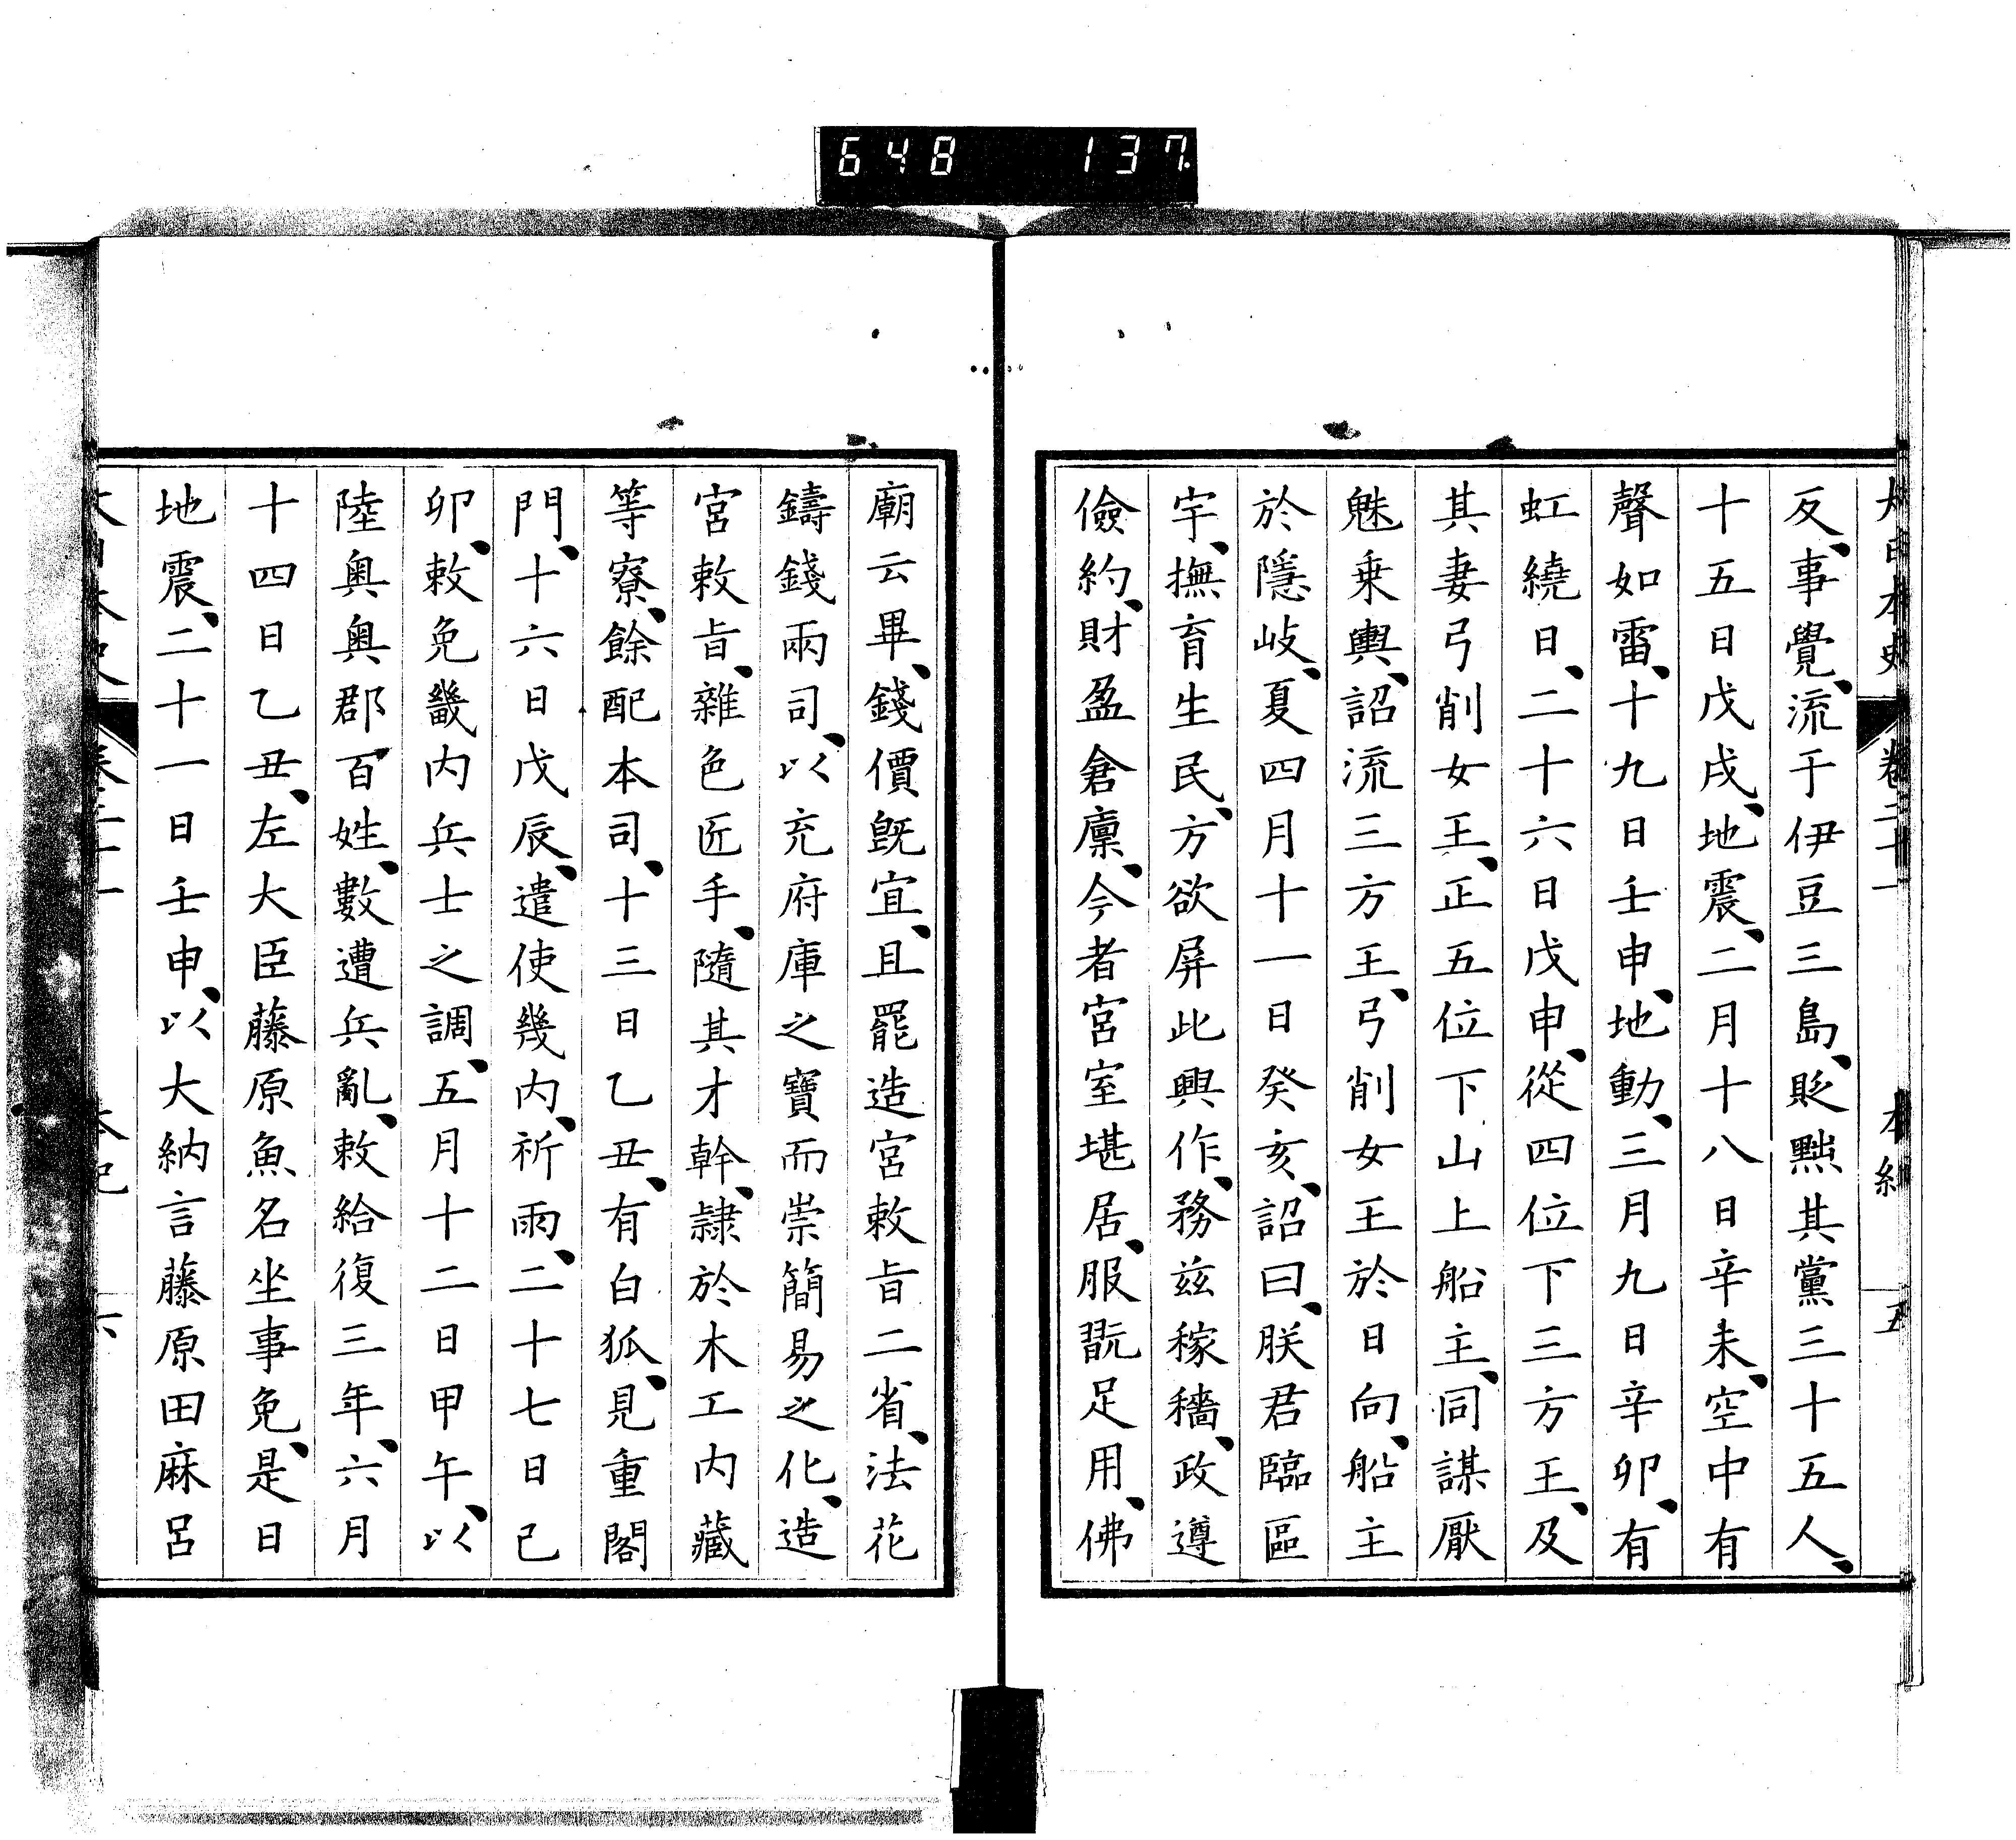 648 137
大日本史 卷二十一 本紀 五
反、事覺、流于伊豆三島、貶黜其黨三十五人、
十五日戊戌、地震、二月十八日辛未、空中有
聲如雷、十九日壬申、地動、三月九日辛卯、有
虹繞日、二十六日戊申、從四位下三方王、及
其妻弓削女王、正五位下山上船主、同謀厭
魅乗輿、詔流三方王、弓削女王於日向、船主
於隱岐、夏四月十一日癸亥、詔曰、朕君臨區
宇、撫育生民、方欲屏此興作、務茲稼穡、政遵
儉約、財盈倉廩、今者宮室堪居、服翫足用、佛
廟云畢、錢價既宜、且罷造宮敕旨二省、法花
鑄錢兩司、以充府庫之寶而崇簡易之化、造
宮敕旨、雜色匠手、隨其才幹、隷於木工内藏
等寮、餘配本司、十三日乙丑、有白狐、見重閣
門、十六日戊辰、遣使幾内、祈雨、二十七日己
卯、敕免畿内兵士之調、五月十二日甲午、以
陸奥奥郡百姓、數遭兵亂、敕給復三年、六月
十四日乙丑、左大臣藤原魚名坐事免、是日
地震、二十一日壬申、以大納言藤原田麻呂
大日本史 卷二十一 本紀 六